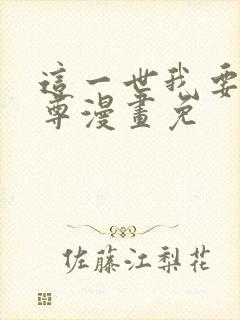 這一世我要
尊漫畫免
佐藤江梨花